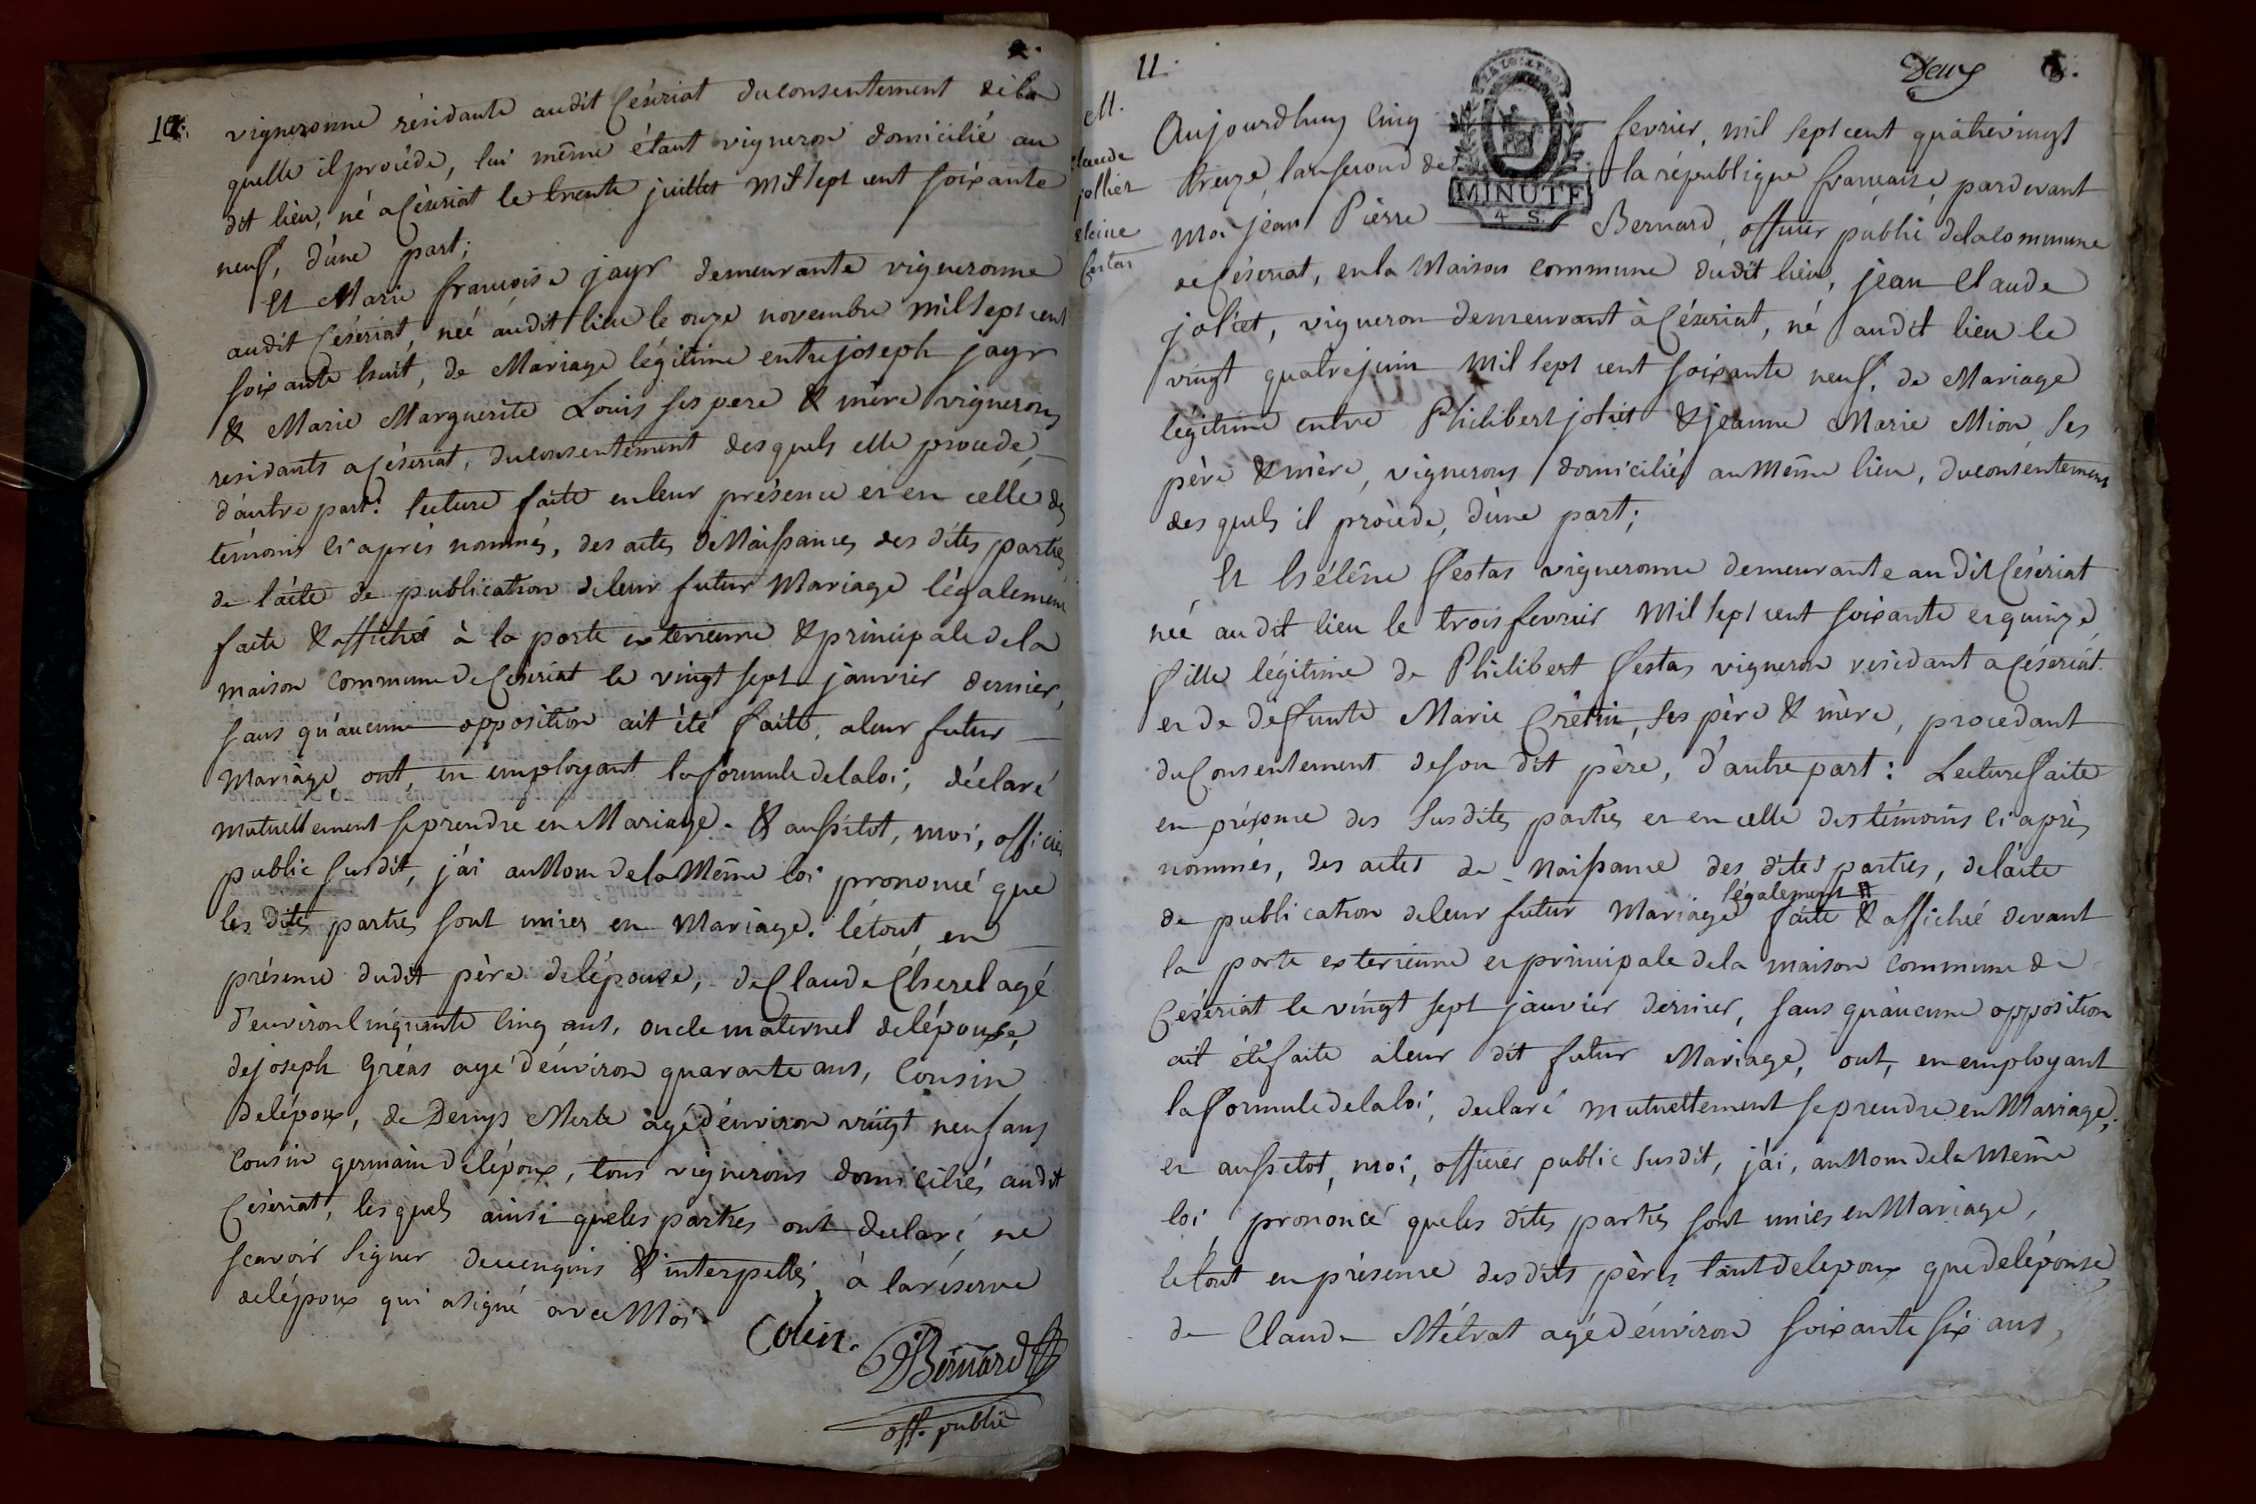 10.
vigneronne résidante audit Césériat du consentement de la
quelle il procède, lui même étant vigneron domicilié au
dit lieu, né a Céseriat le trente juillet mil sept cent soixante
neuf, d'une part;
Et Marie françoise jayr demeurante vigneronne
audit Céseriat, née audit lieu le onze novembre mil sept cent
soixante huit, de Mariage légitime entre joseph jayr
& Marie Marguerite Louis ses pere & mère vignerons
residants a Céseriat, du consentement des quels elle procede,
d'autre part: lecture faite en leur présence et en celle des
témoins ci après nommés, des actes de Naissances des dites parties
de l'acte de publication de leur futur Mariage légalement
faite & affiché à la porte exterieure & principale de la
maison commune de Céseriat le vingt sept janvier dernier,
sans qu'aucune opposition ait été faite, a leur futur
Mariage, ont, en employant la formule de la loi, déclaré
mutuellement se prendre en Mariage. & aussitot, moi, officier
public susdit, j'ai au Nom de la Même loi prononcé que
les dites parties sont unies en Mariage. le tout en
présence dudit père de l'épouse, de Claude Cherel agé
d'environ Cinquante Cinq ans, oncle maternel de l'épouse,
de joseph Gréas agé d'environ quarante ans, Cousin
de l'époux, de Denys Merle agé d'environ vingt neuf ans
Cousin germain de l'époux, tous vignerons domiciliés audit
Céseriat, les quels ainsi que les parties ont déclaré ne
scavoir signer de ce enquis & interpellés, à la réserve
de l'époux qui a signé avec Moi.
Colin.
Bernard
off. public
11.
Deux
M.
Claude
jollier
heleine
Festas
Aujourdhuy Cinq fevrier, mil sept cent quatrevingt
treize, l'an second de la république française, pardevant
Moi jean Pierre Bernard, officier public de la commune
de Céseriat, en la Maison commune dudit lieu, jean Claude
joliet, vigneron demeurant à Céseriat, né audit lieu le
vingt quatre juin mil sept cent soixante neuf, de Mariage
légitime entre Philibert joliet & jeanne Marie Mion ses
père & mère, vignerons domiciliés au Même lieu, du consentement
des quels il procède, d'une part;
Et hélène Festas vigneronne demeurante audit Céseriat
née audit lieu le trois fevrier Mil sept cent soixante et quinze,
fille légitime de Philibert Festas vigneron residant a Céseriat
et de deffunte Marie Crétin, ses père & mère, procedant
du Consentement de son dit père, d'autre part: Lecture faite
en présence des susdites parties et en celle des témoins ci après
nommés, des actes de Naissance des dites parties, de l'acte
de publication de leur futur Mariage légalement faite & affiché devant
la porte exterieure et principale de la maison commune de
Céseriat le vingt sept janvier dernier, sans qu'aucune opposition
ait été faite a leur dit futur Mariage, ont, en employant
la formule de la loi, declaré mutuellement se prendre en Mariage,
et aussitot, moi, officier public susdit, j'ai, au Nom de la Même
loi, prononcé que les dites parties sont unies en Mariage,
le tout en présence desdits pères tant de l'epoux que de l'épouse,
de Claude Métrat agé d'environ soixante six ans,
MINUTE
4 S.